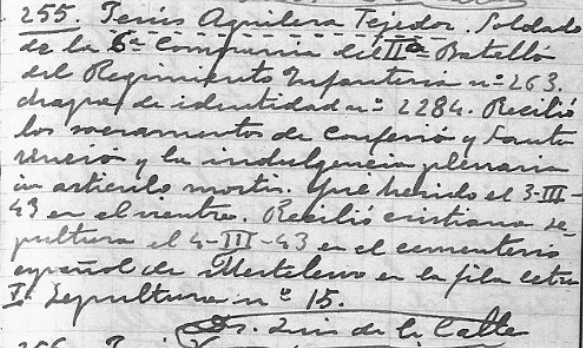 255. Jesús Aguilera Tejedor. Soldado
de la 6ª Compania del IIº Batallón
del Regimiento Infanteria nº 263.
chapa de identidad nº 2284. Recibió
los sacramentos de Confesió y Santa
Unció y la indulgencia plenaria
in articulo mortis. Fué herido el 3-III-
43 en el vientre. Recibió cristiana se-
pultura el 4-III-43 en el cementerio
español de Mestelewo en la fila letra
I. Sepultura nº 15.
Dr. Luis de la Calle
256.